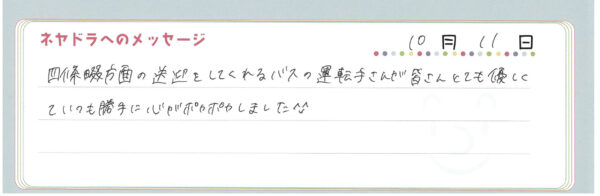 ネヤドラへのメッセージ
10月11日
四條畷方面の送迎をしてくれるバスの運転手さんが皆さんとても優しく
ていつも勝手に心がポカポカしました^^